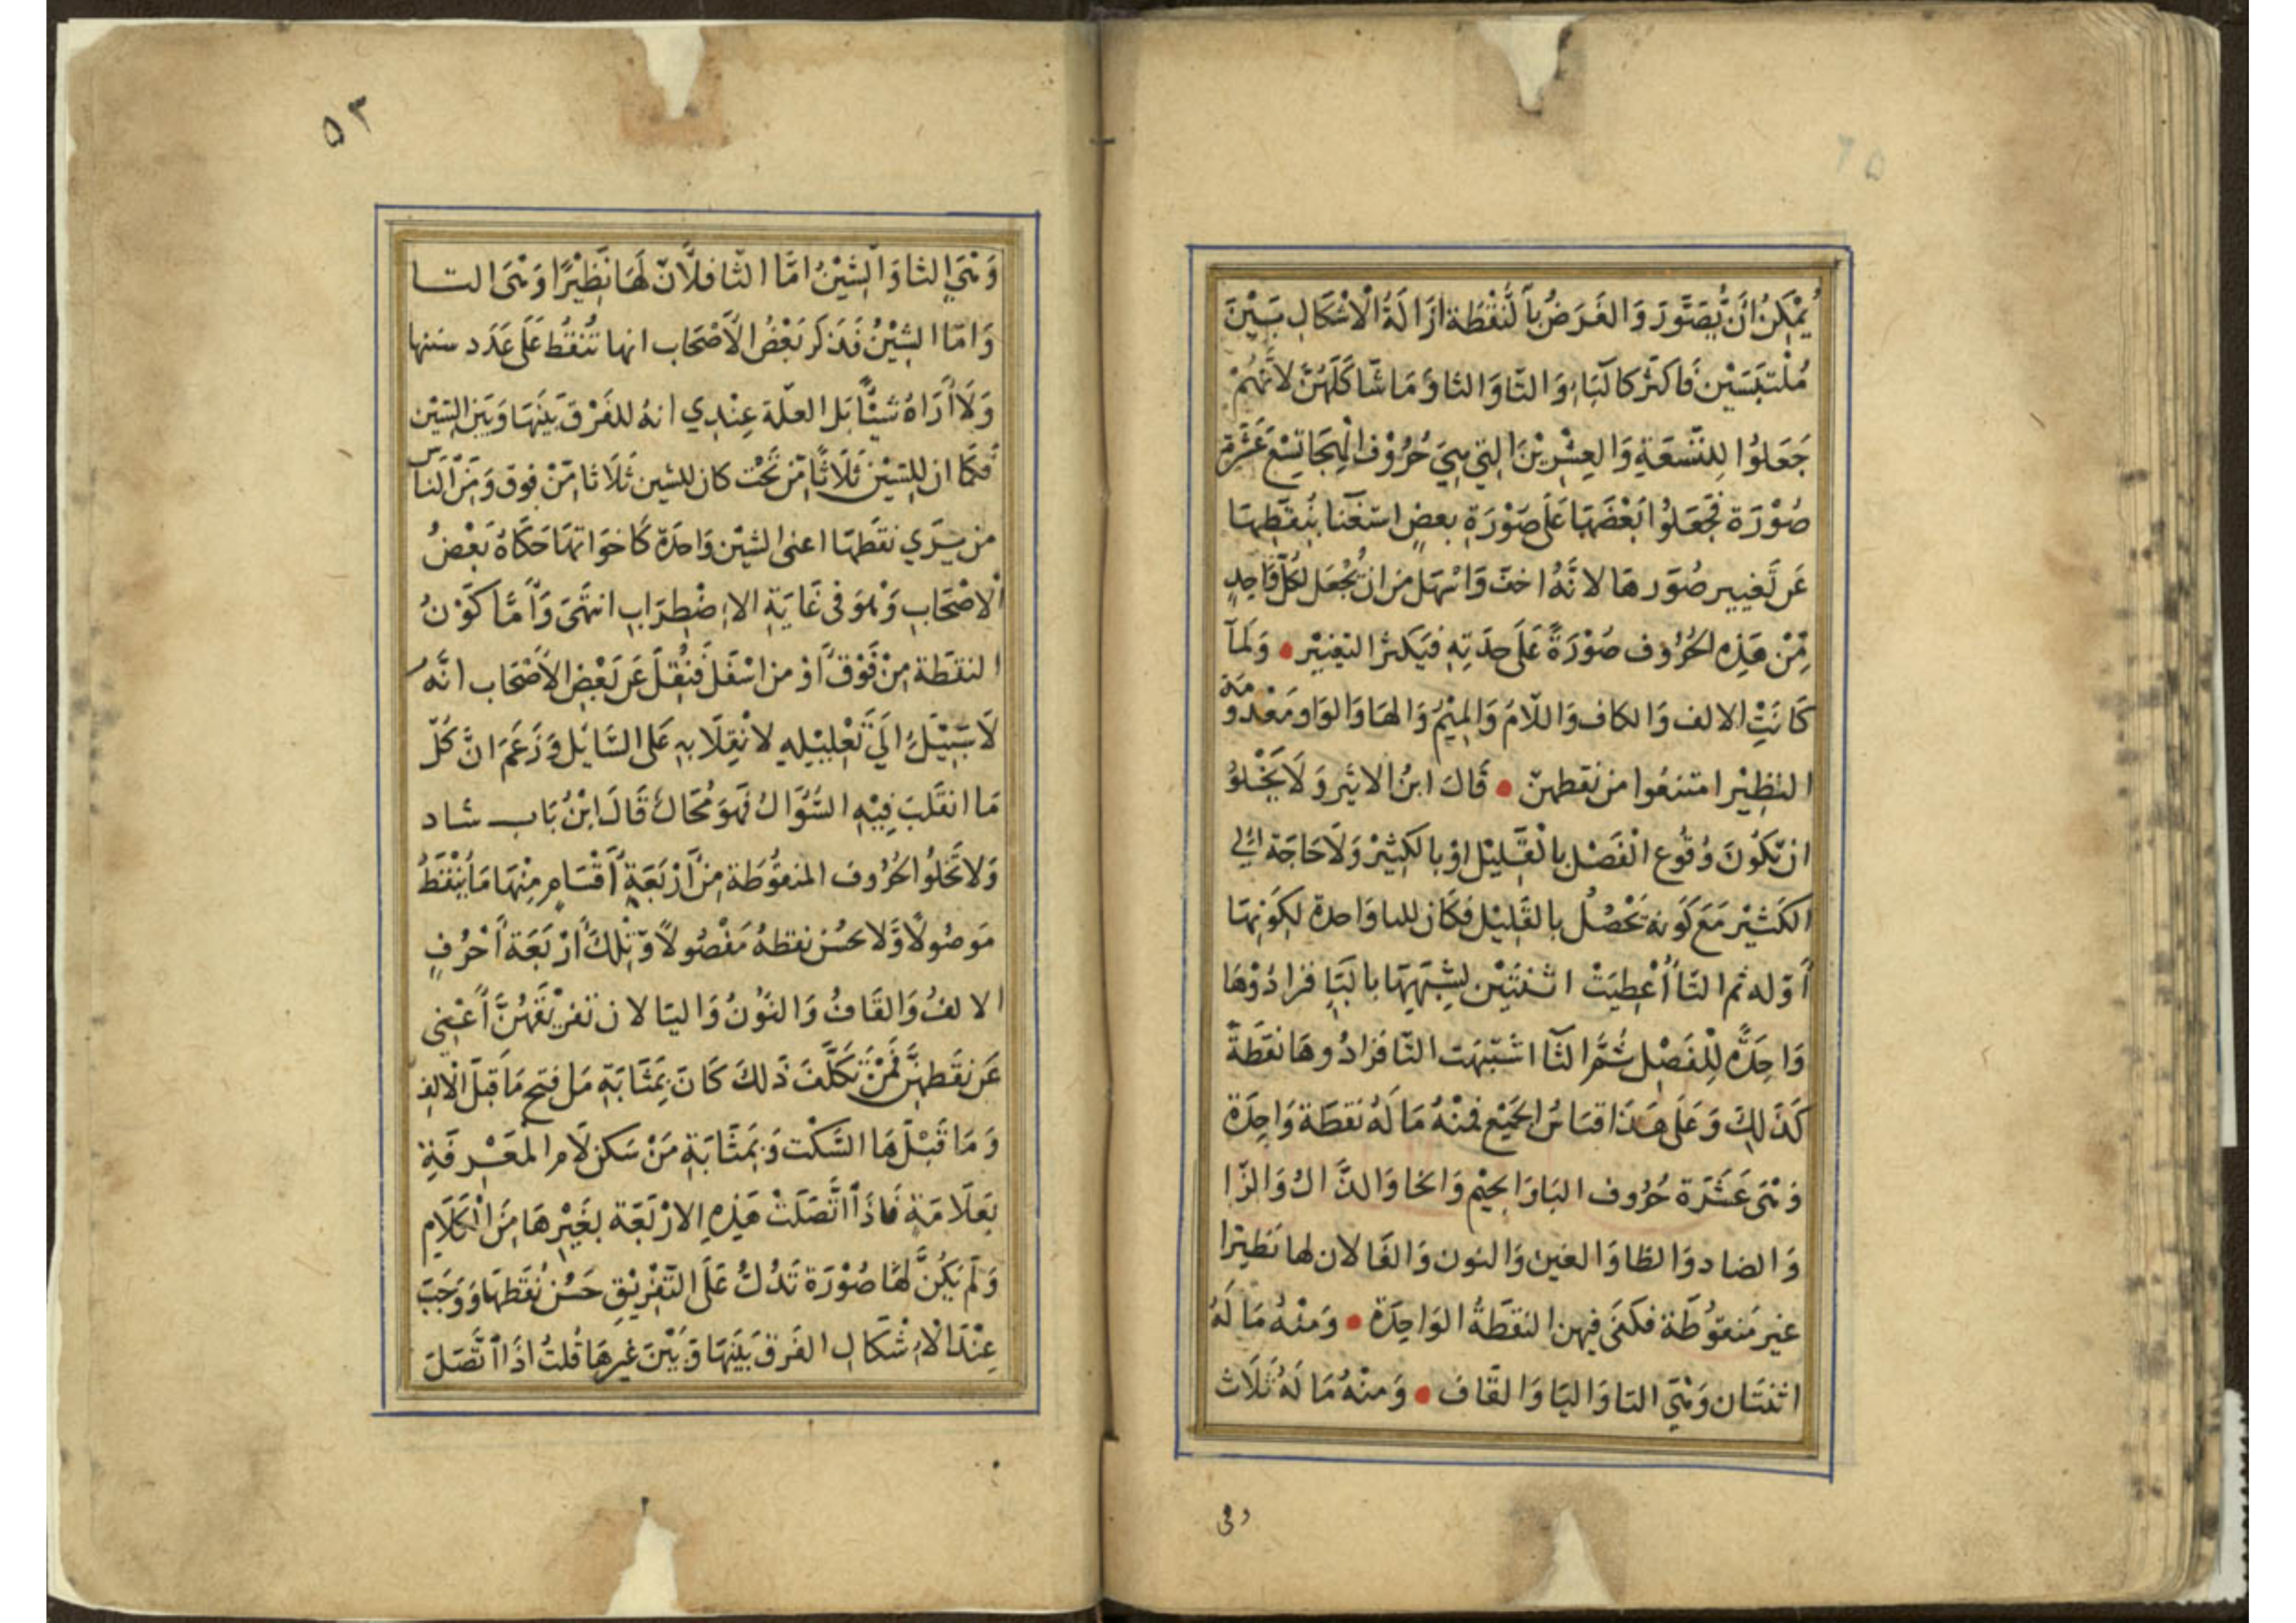 يُمْكِنُ انْ يُّصَوَّرَ وَالغَرَضُ بِالنُّقْطَة ازَالَةُ الْاشْكَالِ بَيْنَ
مُلْتَبَسَيْن فَاكثَر كالبَاءِ وَالتَّا وَالثا وَمَا شَاكَلَهُنَّ لانَّهُمْ
جَعَلُوا لِلتِّسْعَةِ وَالعِشْرِيْنَ التِي هِيَ حُرُوْف الْهِجَا تِسْعَ عَشَرةَ
صُوْرَة فَجَعَلُوا بَعْضَهَا عَلَى صَوْرَةِ بعضٍ اسْتغْنَا بنُقَطِهَا
عَن تَغيير صُوَرهَا لانَّهُ اخفّ وَاسْهَل مِن ان يُجْعَل لكُلّ وَاحِدٍ
مِّنْ هَذِهِ الحُرُوف صُوْرَةً عَلَى حدَتِهِ فيَكثر التغيْير • وَلَمآ
كَانَتِ الالف وَالكاف وَاللّامَ وَالمِيْمُ وَالهَا وَالوَاو مَعْدُومَة
النظِيْر امتنعُوا من نقطهنّ • قَالَ ابنُ الاثير وَلَا يَخْلوُ
ان يّكوُنَ وُقُوع الْفَصْل بالْقَلِيْل اوْ بالكَثِيْر وَلَا حَاجَة الَي
الكَثيْر مَعَ كَوْنهِ يَحْصُلُ بالقَلِيْل فكَان للبا وَاحدة لكوْنِهَا
أوّله ثم التّا أُعْطِيَتْ اثنتَيْن لِشَبَهِهَا بالبَآءِ فزادُوْهَا
وَاحِدَةً لِلْفَصْل ثُمَّ الثّآ اشتبهَت التّا فزادُوهَا نقَطَةً
كَذَلِكَ وَعَلَى هَذَا قيَاسُ الجَمِيْع فمنْهُ مَا لَهُ نقطَة وَاحِدَة
وَهْيَ عَشَرَة حُرُوف البَا وَالجيْم وَالخا وَالذَّالُ وَالزّا
وَالضاد وَالظا وَالغين وَالنون وَالفَا لان لها نَظِيْرًا
غير مَنقوُطَة فكفَى فيهن النقطَةُ الوَاحِدَة • وَمنْهُ مَا لَهُ
اثنتَان وَهْيَ التا وَاليَا وَالقَاف • وَمنْهُ مَا لَهُ ثَلَاث
وهي
٥٣
وَهْيَ الثا وَالشِيْنُ امَّا الثا فلأنّ لَهَا نَظِيْرًا وَهْىَ التا
وَامّا الشِيْنُ فَذكرَ بَعْضُ الأَصْحَاب انها تُنقَطُ عَلَى عَدَد سننها
وَلَا أَرَاهُ شَيْئًا بَل العلّة عِنْدِي انهُ للفَرْق بَيْنَهَا وَبَين السِّيْن
فكَمَا ان لِلسِّيْن ثَلَاثًا مّن تَحْت كان للشين ثَلَاثا مّنْ فوق وَمِنَ النَّاس
من يَرَي نقطَهَا اعني الشيْن وَاحدَة كَاخوَاتهَا حَكَاهُ بَعْضُ
الْاصْحَابِ وَهْوَ في غَايَةِ الاِضْطِرَابِ انتهَى وَأمَّا كَوْنُ
النقطَة مِنْ فَوْق أَوْ من اسْفَل فنُقِلَ عَن بَعْضِ الأَصْحَاب انَّهُ
لَا سَبِيْلَ الَيْ تَعْلِيْلِهِ لانْقِلَابهِ عَلى السَّائِل وَزَعَمَ انَّ كُلّ
مَا انقَلَبَ فِيْهِ السُّؤَالُ فَهَوَ مُحَالٌ قَالَ ابْنُ بَابِ شاد
وَلا تَخلوُا الحُرُوف المنقوُطَة مِنْ أرْبَعَةِ أَقْسَامٍ مِنْهَا مَا يُنْقَطُ
مَوصُولًا وَّلا يحسُن نقطهُ مَفْصُولًا وَتِلْكَ أرْبَعَة أَحْرُفٍ
الالفُ وَالقَافُ وَالنُوْنُ وَاليَا لان تفريْقَهُنَّ أَغْنى
عَن نقَطهنَّ فَمَنْ تَكَلَّفَ ذَلكَ كَانَ بِمَثَابَةِ مَن فتح مَا قبلَ الْالِف
وَمَا قَبْلَ هَا السَّكْت وَبمَثَابَةِ مَنْ سَكن لَام المَعْرِفَةِ
بعَلَامَةٍ فَاذَا اتَّصَلَتْ هَذِهِ الارْبَعَة بغَيْرهَا مِنَ الْكَلَامِ
وَلَم يَكُنْ لهَّا صُوْرَة تَدُلُّ عَلَى التّفْرِيْقِ حَسُنَ نُقَطهَا وَوَجَبَ
عِنْدَ الْاِشْكَالِ الفَرق بَيْنَهَا وَبَيْنَ غيرهَا قُلتُ اذَا اتَّصَلَ